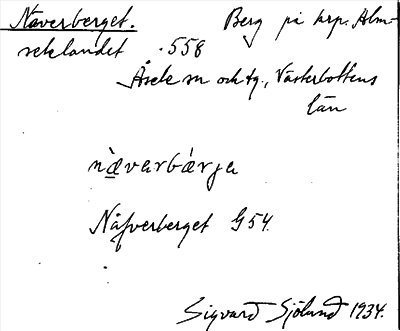 Näverberget. Berg på krp. Alm-
seklandet .558
Åsele sn och tg., Västerbottens
län
nævarbárja
Näfverberget G54.
Sigvard Sjölund 1934.